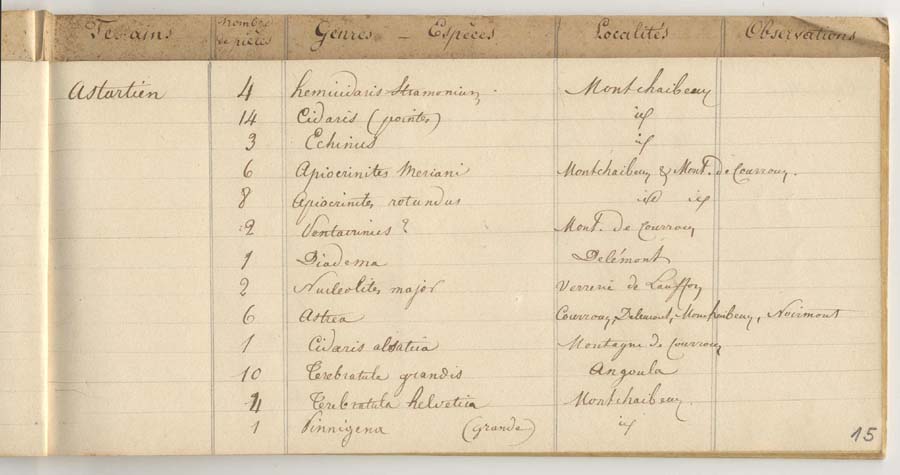 Terrains Nombre de pièces Genres - Espèces Localités Observations
Astartien 4 hemicidaris Stramonium. Montchaibeux
14 Cidaris (pointes) id
3 Echinus id
6 Apiocrinites Meriani Montchaibeux & Mont. de Courroux.
8 Apiocrinites rotundus id id
2 Pentacrinies ? Mont. de Courroux
1 Diadema Delémont
2 Nucleolites major Verrerie de Lauffon
6 Astrea Courroux, Delemont, Montchaibeux, Noirmont
1 Cidaris alsatica Montagne de Courroux
10 Terebratula grandis Angoula
4 Terebratula helvetica Montchaibeux.
1 Pinnigena (grande) id
15